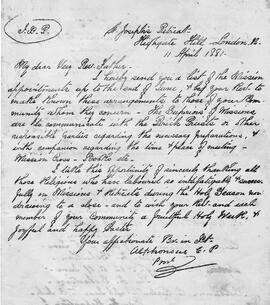 J.X.P.
St Joseph's Retreat
Highgate Hill, London, N.
11 April 1881.
My dear Very Rev. Father.
I hereby send you a list of the Mission
appointments up to the end of June, & beg your Rev. to
make known these arrangements to those of your Com-
munity whom they concern. The Superiors of Missions
are to communicate with the Parish Priests & other
responsible parties regarding the necessary preparations, &
with companions regarding the time & place of meeting -
Mission Cross - Books etc.
I take this opportunity of sincerely thanking all
those Religious who have laboured so indefatigably &
fully in Missions & Retreats during the Holy Season now
drawing to a close - and to wish your Rev. and each
member of your Community a fruitful Holy Week, &
joyful and happy Easter
Your affectionate Br. in Xt.
Alphonsus C.P.
Prov.